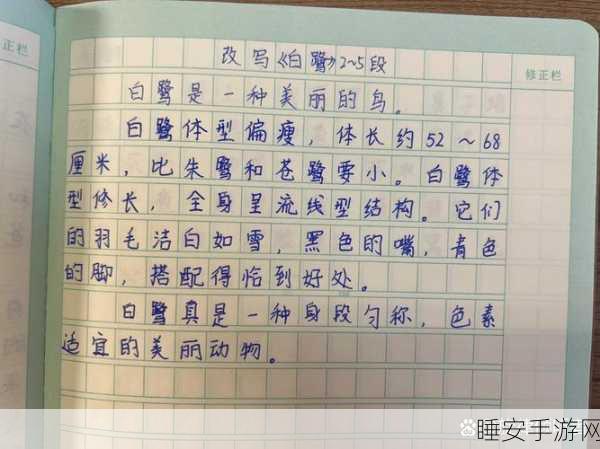 正栏
改写《白鹭》2~5段
修正栏
白鹭是一种美丽的鸟。
白鹭体型偏瘦，体长约52～68
厘米，比朱鹭和苍鹭要小。白鹭体
型修长，全身呈流线型结构。它们
的羽毛洁白如雪，黑色的嘴，青色
的脚，搭配得恰到好处。
白鹭真是一种身段匀称，色素
适宜的美丽动物。
睡安手游网